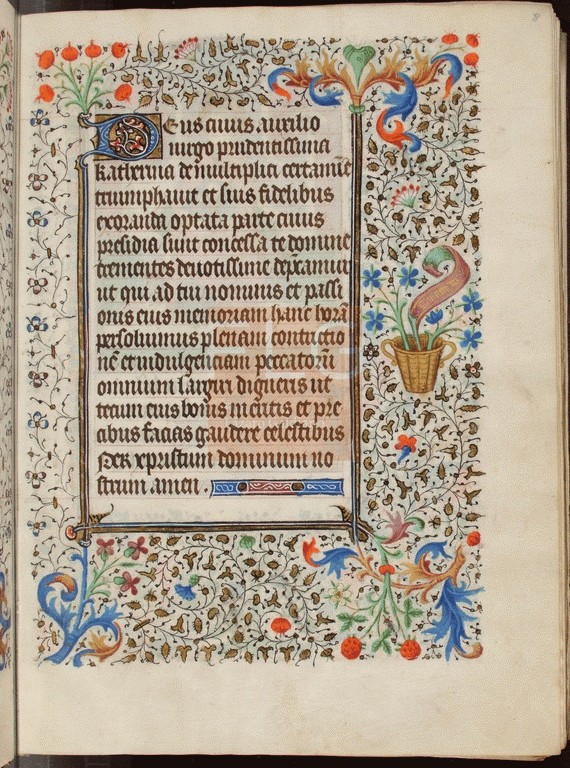 Deus cuius auxilio
uirgo prudentissima
katherina de multiplici certamīe
triumphauit et suis fidelibus
exoranda optata parte cuiuis
presidia sunt concessa te domine
trementes deuotissime dep̄camur
ut qui ad tui nominis et passi
onis eius memoriam hanc horā
persoluimus plenam contricio
nē et indulgenciam peccatorū
omnium largiri digneris ut
tecum eius bonis meritis et pre
cibus facias gaudere celestibus
Per xpristum dominum no
strum amen .